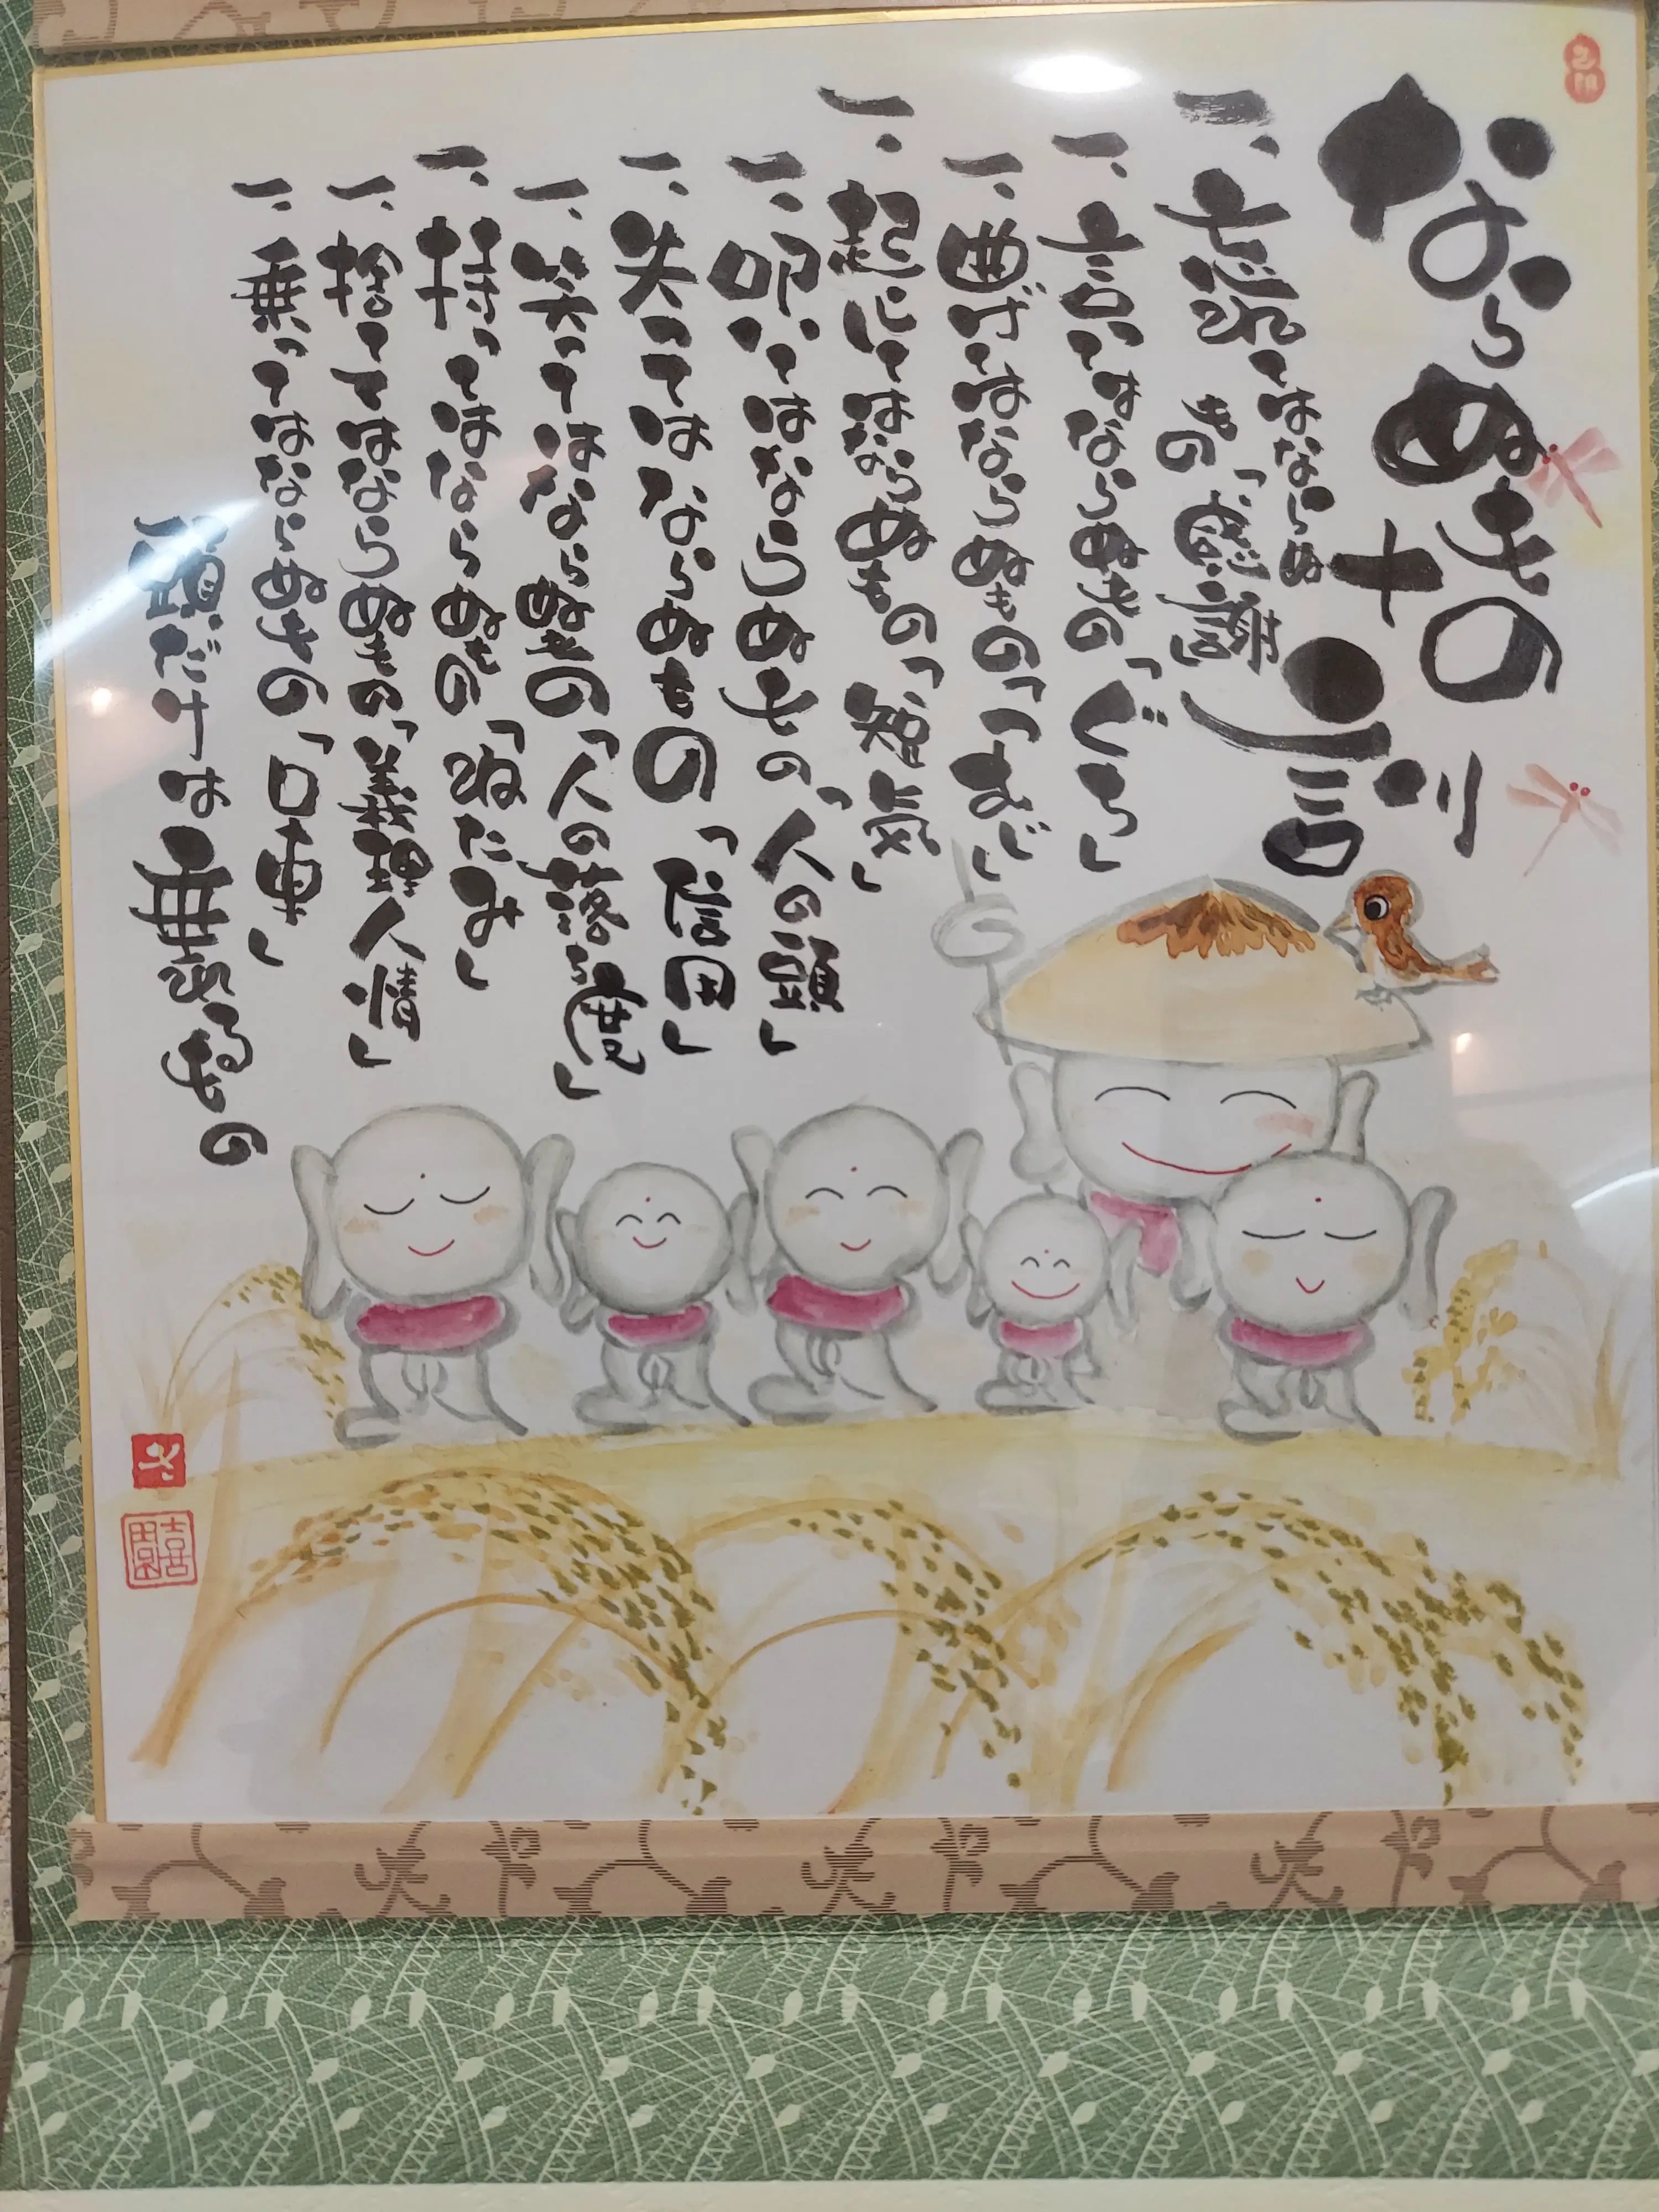 ならぬもの十訓
一、忘れてはならぬもの「感謝」
一、言ってはならぬもの「ぐち」
一、曲げてはならぬもの「つむじ」
一、起こしてはならぬもの「短気」
一、叩いてはならぬもの「人の頭」
一、失ってはならぬもの「信用」
一、笑ってはならぬもの「人の落ち度」
一、持ってはならぬもの「ねたみ」
一、捨ててはならぬもの「義理人情」
一、乗ってはならぬもの「口車」